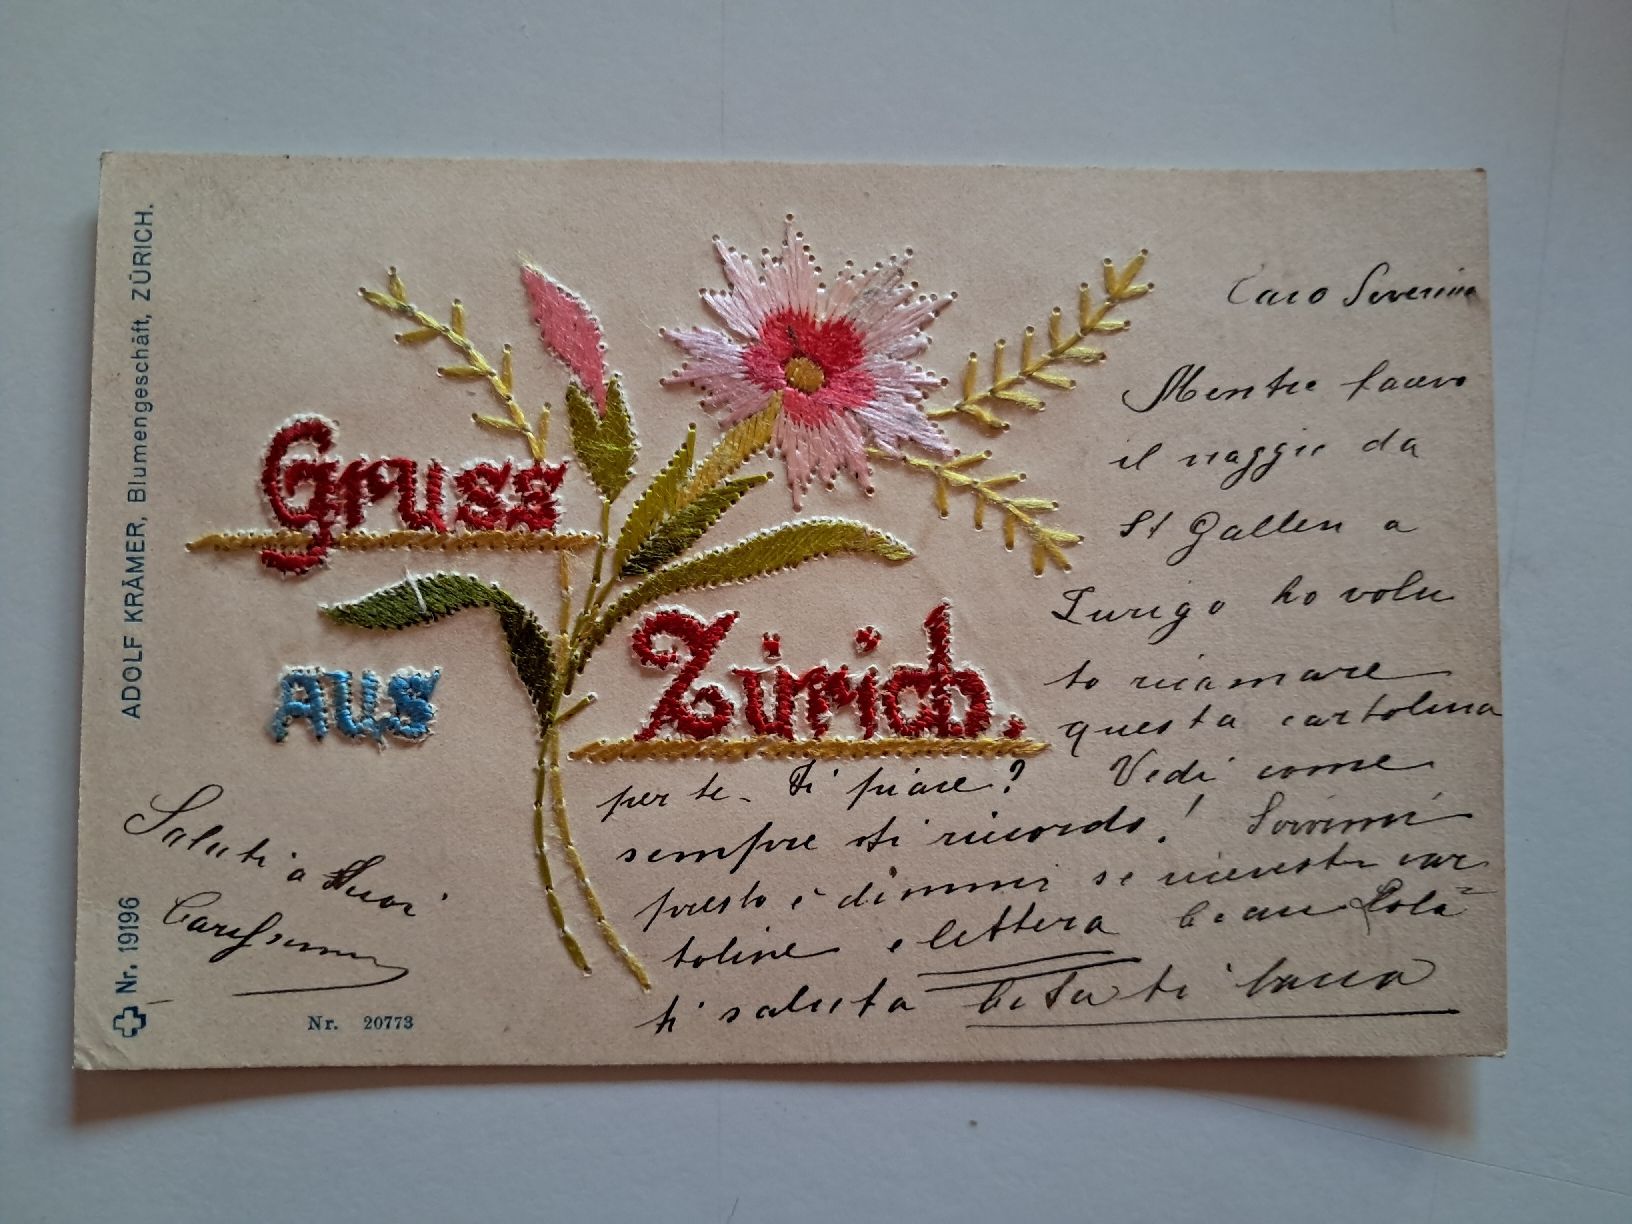 ADOLF KRÄMER, Blumengeschäft, ZÜRICH.
Nr. 19196
Gruss
aus
Zürich.
Caro Severino
Mentre facevo
il viaggio da
St Gallen a
Zurigo ho volu
to ricamare
questa cartolina
per te. Ti piace? Vedi come
sempre ti ricordo! Scrivimi
presto e dimmi se ricevesti car=
toline e lettera
ti saluta ti bacia
Saluti a tuoi
Carissimi
Nr. 20773